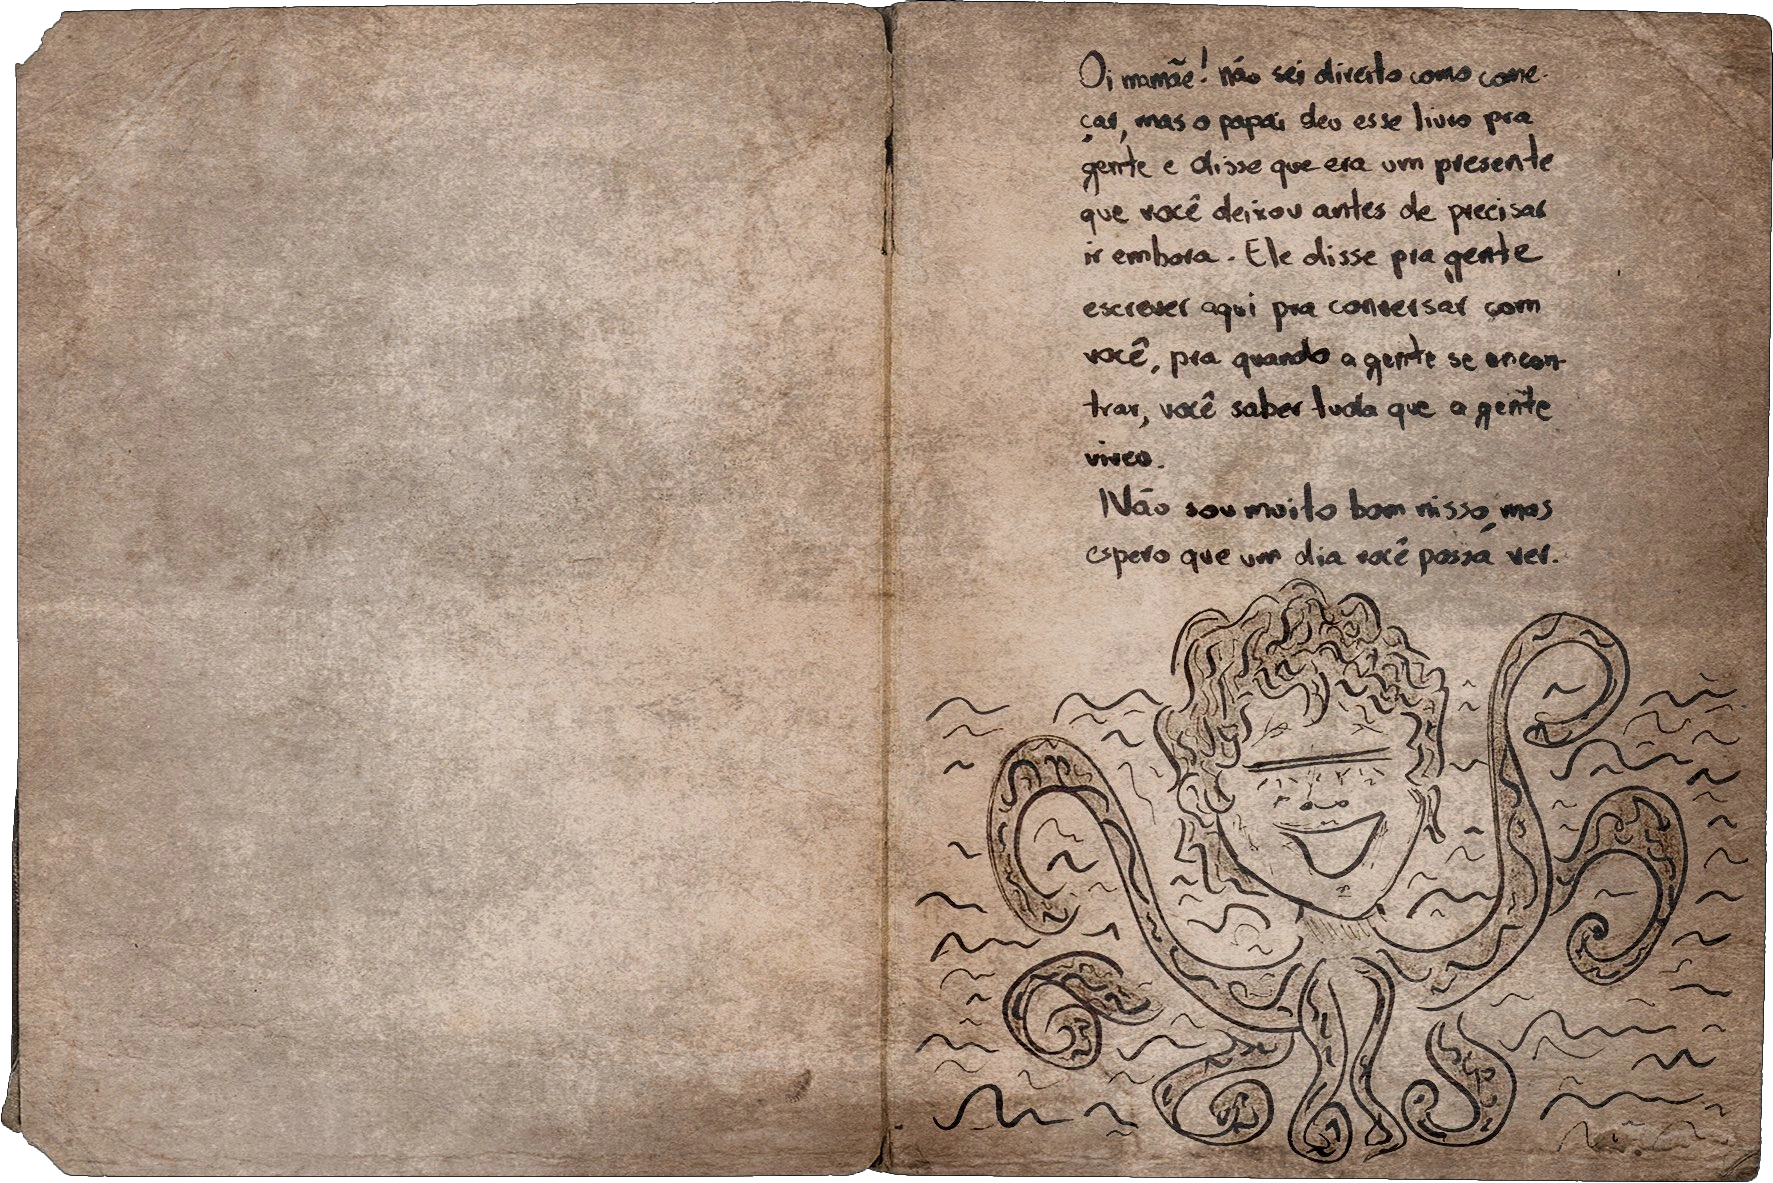 Oi mamãe! não sei direito como come-
çar, mas o papai deu esse livro pra
gente e disse que era um presente
que você deixou antes de precisar
ir embora. Ele disse pra gente
escrever aqui pra conversar com
você, pra quando a gente se encon-
trar, você saber tuda que a gente
viveo.
Não sou muito bom nisso, mas
espero que um dia você possa ver.